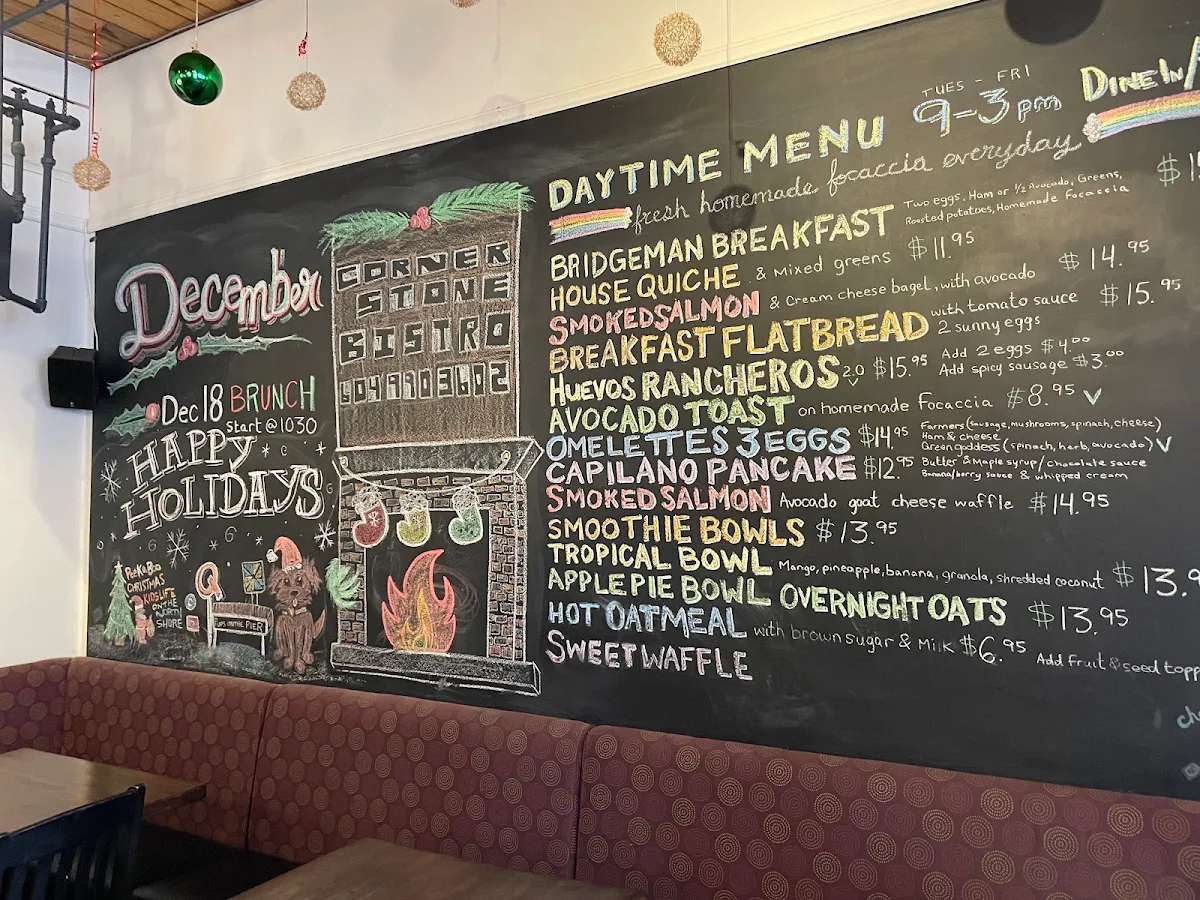 December
Dec 18 BRUNCH
start @ 1030
HAPPY
HOLIDAYS
PeeKaBoo
CHRISTMAS
KIDS LIFE
ON THE
NORTH
SHORE
Q
PUPS ON THE PIER
CORNER
STONE
BISTRO
6049903602
DAYTIME MENU
TUES - FRI
9-3pm
DINE IN/
fresh homemade focaccia everyday
BRIDGEMAN BREAKFAST Two eggs, Ham or 1/2 Avocado, Greens,
Roasted potatoes, Homemade Focaccia
HOUSE QUICHE & Mixed greens $11.95
SMOKED SALMON & Cream cheese bagel, with avocado $14.95
BREAKFAST FLATBREAD with tomato sauce $15.95
2 sunny eggs
HUEVOS RANCHEROS 2.0 V $15.95 Add 2 eggs $4.00
Add spicy sausage $3.00
AVOCADO TOAST on homemade Focaccia $8.95 V
OMELETTES 3 EGGS $14.95 Farmers (Sausage, mushrooms, spinach, cheese)
Ham & cheese
Green goddess (spinach, herb, avocado) V
CAPILANO PANCAKE $12.95 Butter & Maple syrup / chocolate sauce
Banana/berry sauce & whipped cream
SMOKED SALMON Avocado goat cheese waffle $14.95
SMOOTHIE BOWLS $13.95
TROPICAL BOWL Mango, pineapple, banana, granola, shredded coconut $13.9
APPLE PIE BOWL OVERNIGHT OATS $13.95
HOT OATMEAL with brown sugar & Milk $6.95 Add fruit & seed topp
SWEET WAFFLE